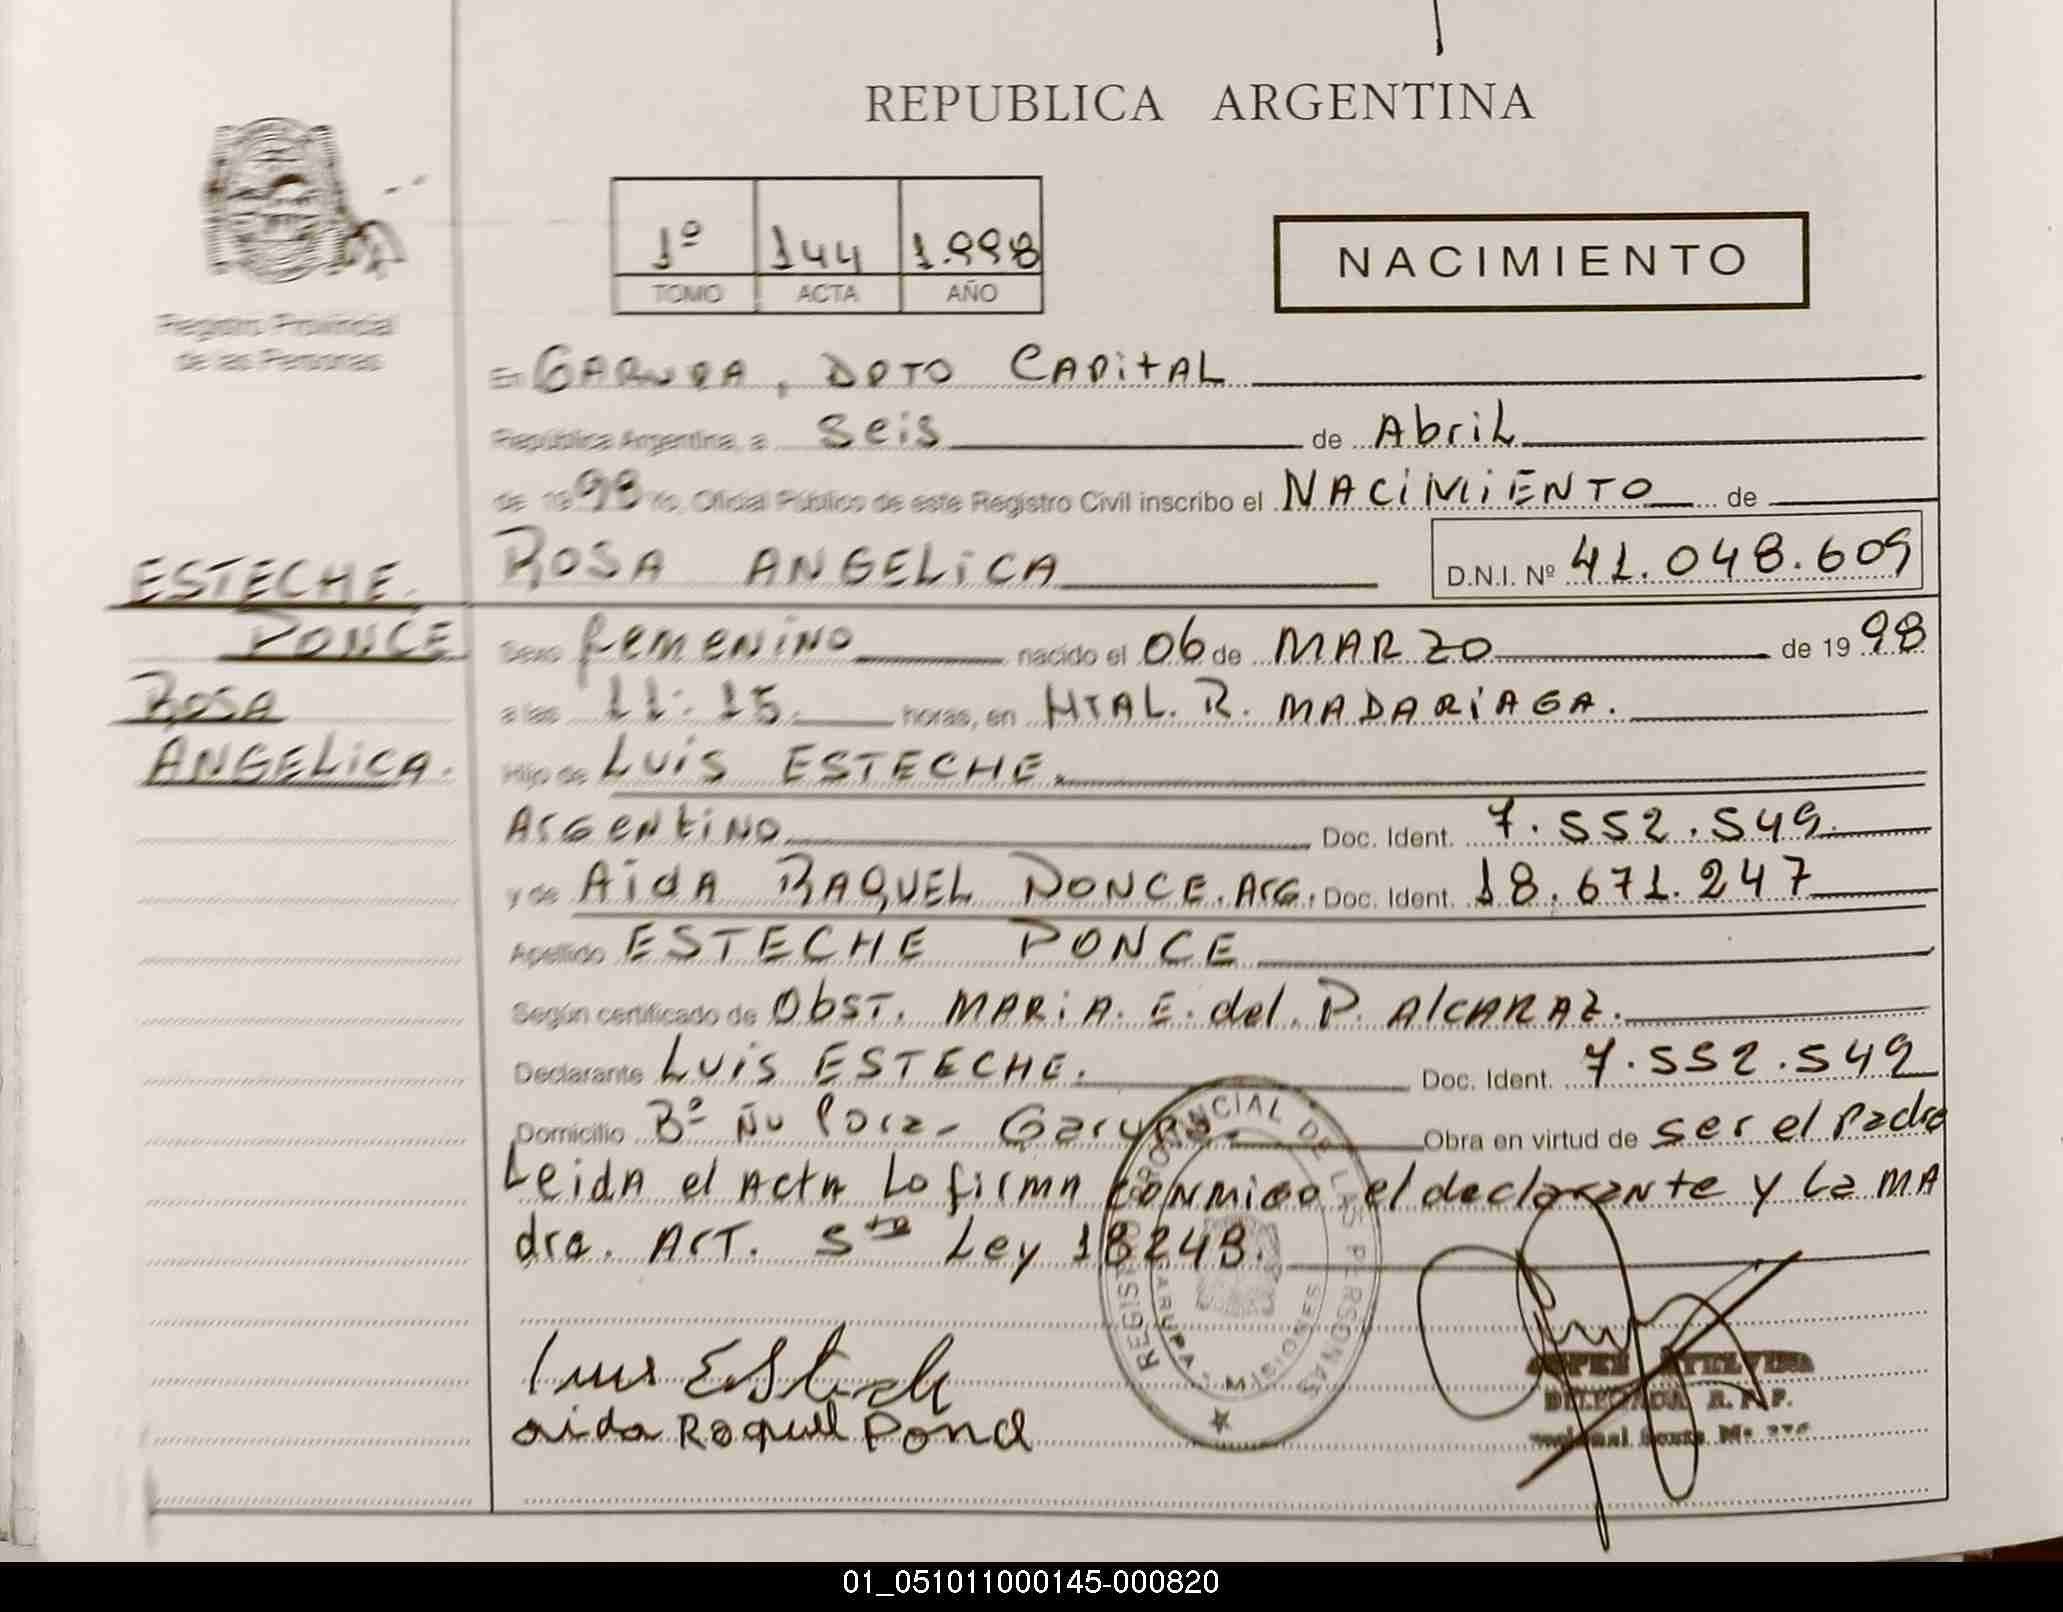 REPUBLICA ARGENTINA
1º 144 1.998
TOMO ACTA AÑO
NACIMIENTO
Registro Provincial
de las Personas
En GARUPA, DPTO CAPITAL
República Argentina, a seis de Abril
de 1998 Yo, Oficial Público de este Registro Civil inscribo el NACIMIENTO de
ROSA ANGELICA D.N.I. Nº 41.048.609
ESTECHE
PONCE
ROSA
ANGELICA.
Sexo femenino nacido el 06 de MARZO de 1998
a las 11:15 horas, en HTAL. R. MADARIAGA.
Hijo de LUIS ESTECHE.
Argentino Doc. Ident. 7.552.549.
y de AIDA RAQUEL PONCE. Arg. Doc. Ident. 18.671.247
Apellido ESTECHE PONCE
Según certificado de Obst. MARIA. E. del. P. AlCARAZ.
Declarante LUIS ESTECHE. Doc. Ident. 7.552.549
Domicilio Bº Ñu Pora - Garupa. Obra en virtud de ser el Padre
Leida el Acta Lo firma CONMIGO el declarante y La MA
dre. Art. 5to Ley 18248.
REGISTRO PROVINCIAL DE LAS PERSONAS
GARUPA MISIONES
Luis Esteche
aida Raquel Ponce
DELEGADA R. P. P.
01_051011000145-000820